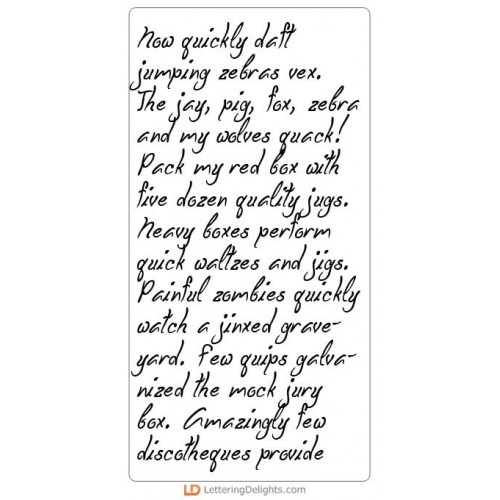 How quickly daft
jumping zebras vex.
The jay, pig, fox, zebra
and my wolves quack!
Pack my red box with
five dozen quality jugs.
Heavy boxes perform
quick waltzes and jigs.
Painful zombies quickly
watch a jinxed grave-
yard. Few quips galva-
nized the mock jury
box. Amazingly few
discotheques provide
LD LetteringDelights.com